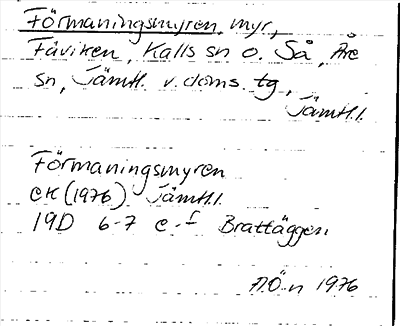 Förmaningsmyren, myr,
Fäviken, Kalls sn o. Så, Åre
sn, Jämtl. v. doms. tg,
Jämtl.l.
Förmaningsmyren
EK (1976) Jämtl.l.
19D 6-7 e-f Brattäggen
A.Ö-n 1976